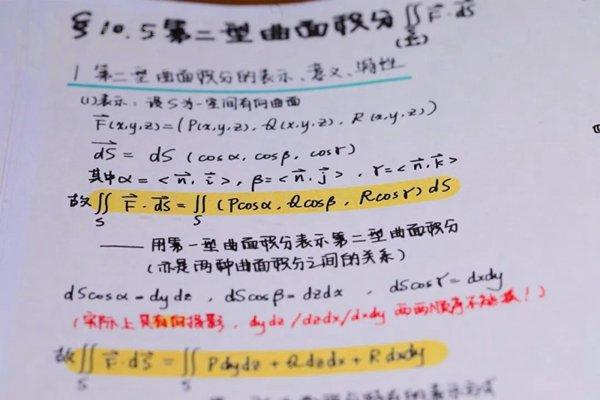 §10.5 第二型曲面积分 ∬(Σ) F⃗·dS⃗
1 第二型曲面积分的表示、意义、特性
(1)表示：设S为一空间有向曲面
F⃗(x,y,z)=(P(x,y,z), Q(x,y,z), R(x,y,z))
dS⃗ = dS (cosα, cosβ, cosγ)
其中α=<n⃗,i⃗>, β=<n⃗,j⃗>, γ=<n⃗,k⃗>
故∬S F⃗·dS⃗ = ∬S (Pcosα, Qcosβ, Rcosγ) dS
—— 用第一型曲面积分表示第二型曲面积分
(亦是两种曲面积分之间的关系)
dScosα=dydz, dScosβ=dzdx, dScosγ=dxdy
(实际上是有向投影, dydz/dzdx/dxdy 两两顺序不能换!)
故∬S F⃗·dS⃗ = ∬S Pdydz+Qdzdx+Rdxdy